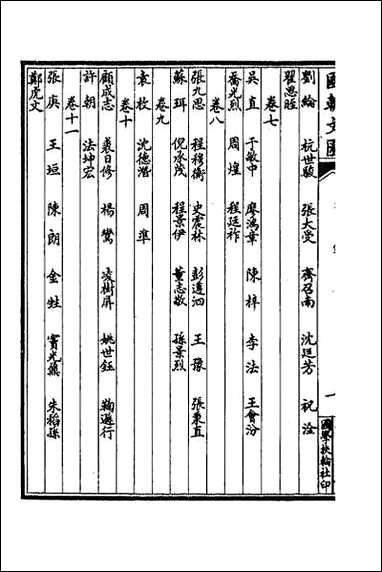 國朝文匯
一
國學扶輪社印
劉綸 杭世駿 張大受 齊召南 沈廷芳 祝洤
翟思晊
卷七
吳直 于敏中 廖鴻章 陳梓 李法 王會汾
喬光烈 周煌 程廷祚
卷八
張九思 程穆衡 史震林 彭遵泗 王豫 張秉直
蘇珥 倪承茂 程景伊 董志敬 孫景烈
卷九
袁枚 沈德潛 周準
卷十
顧成志 裘曰修 楊鸞 凌樹屏 姚世鈺 鞠遜行
許朝 法坤宏
卷十一
張庚 王垣 陳朗 金甡 竇光鼐 朱稻孫
鄭虎文